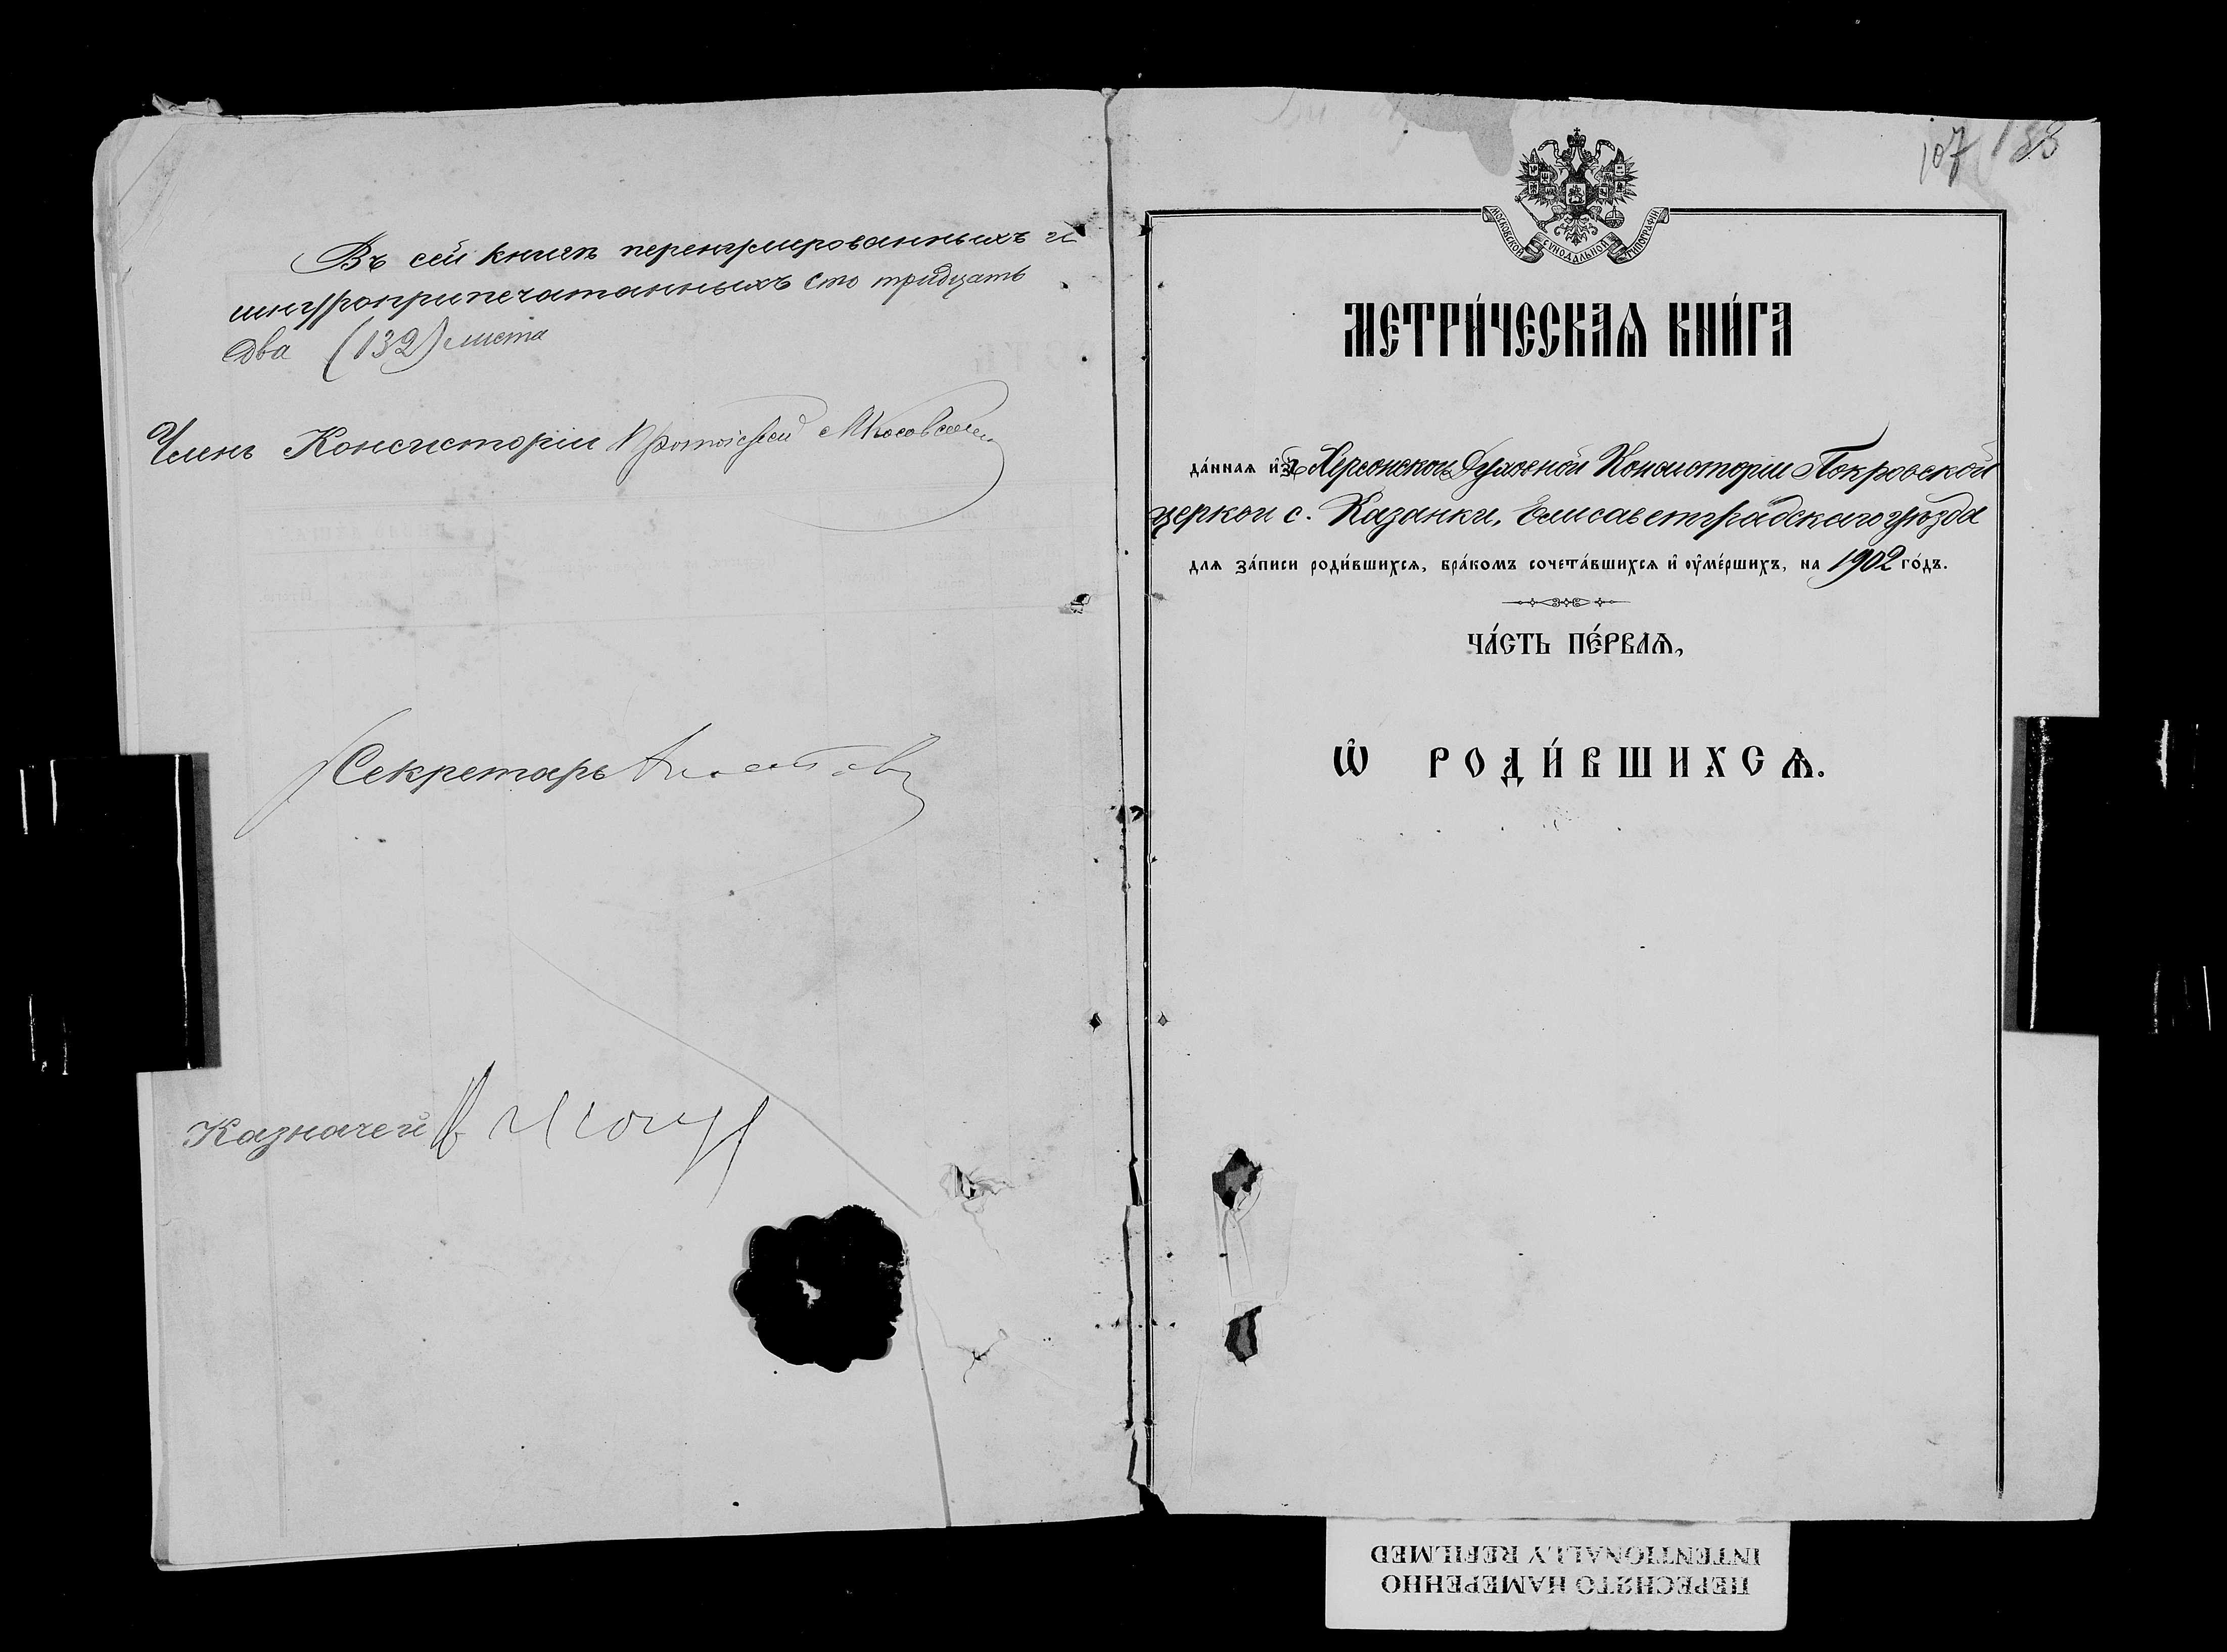 Въ сей книгѣ перенумерованныхъ и
шнуроприпечатанныхъ сто тридцать
два (132) листа
Членъ Консисторіи Протоіерей
Секретарь
Казначей
107 133
МОСКОВСКОЙ СѴНОДАЛЬНОЙ ТИПОГРАФІИ
МЕТРИ́ЧЕСКАѦ КНИ́ГА
да́ннаѧ и҆зъ Херсонской Духовной Консисторіи Покровской
церкви с. Казанки, Елисаветградскаго уѣзда
для за́писи роди́вшихсѧ, бра́комъ сочета́вшихсѧ и҆ ᲂу҆ме́ршихъ, на 1902 го́дъ.
ЧА́СТЬ ПЕ́РВАѦ,
Ѽ РОДИ́ВШИХСѦ.
ПЕРЕСНЯТО НАМЕРЕННО
INTENTIONALLY REFILMED